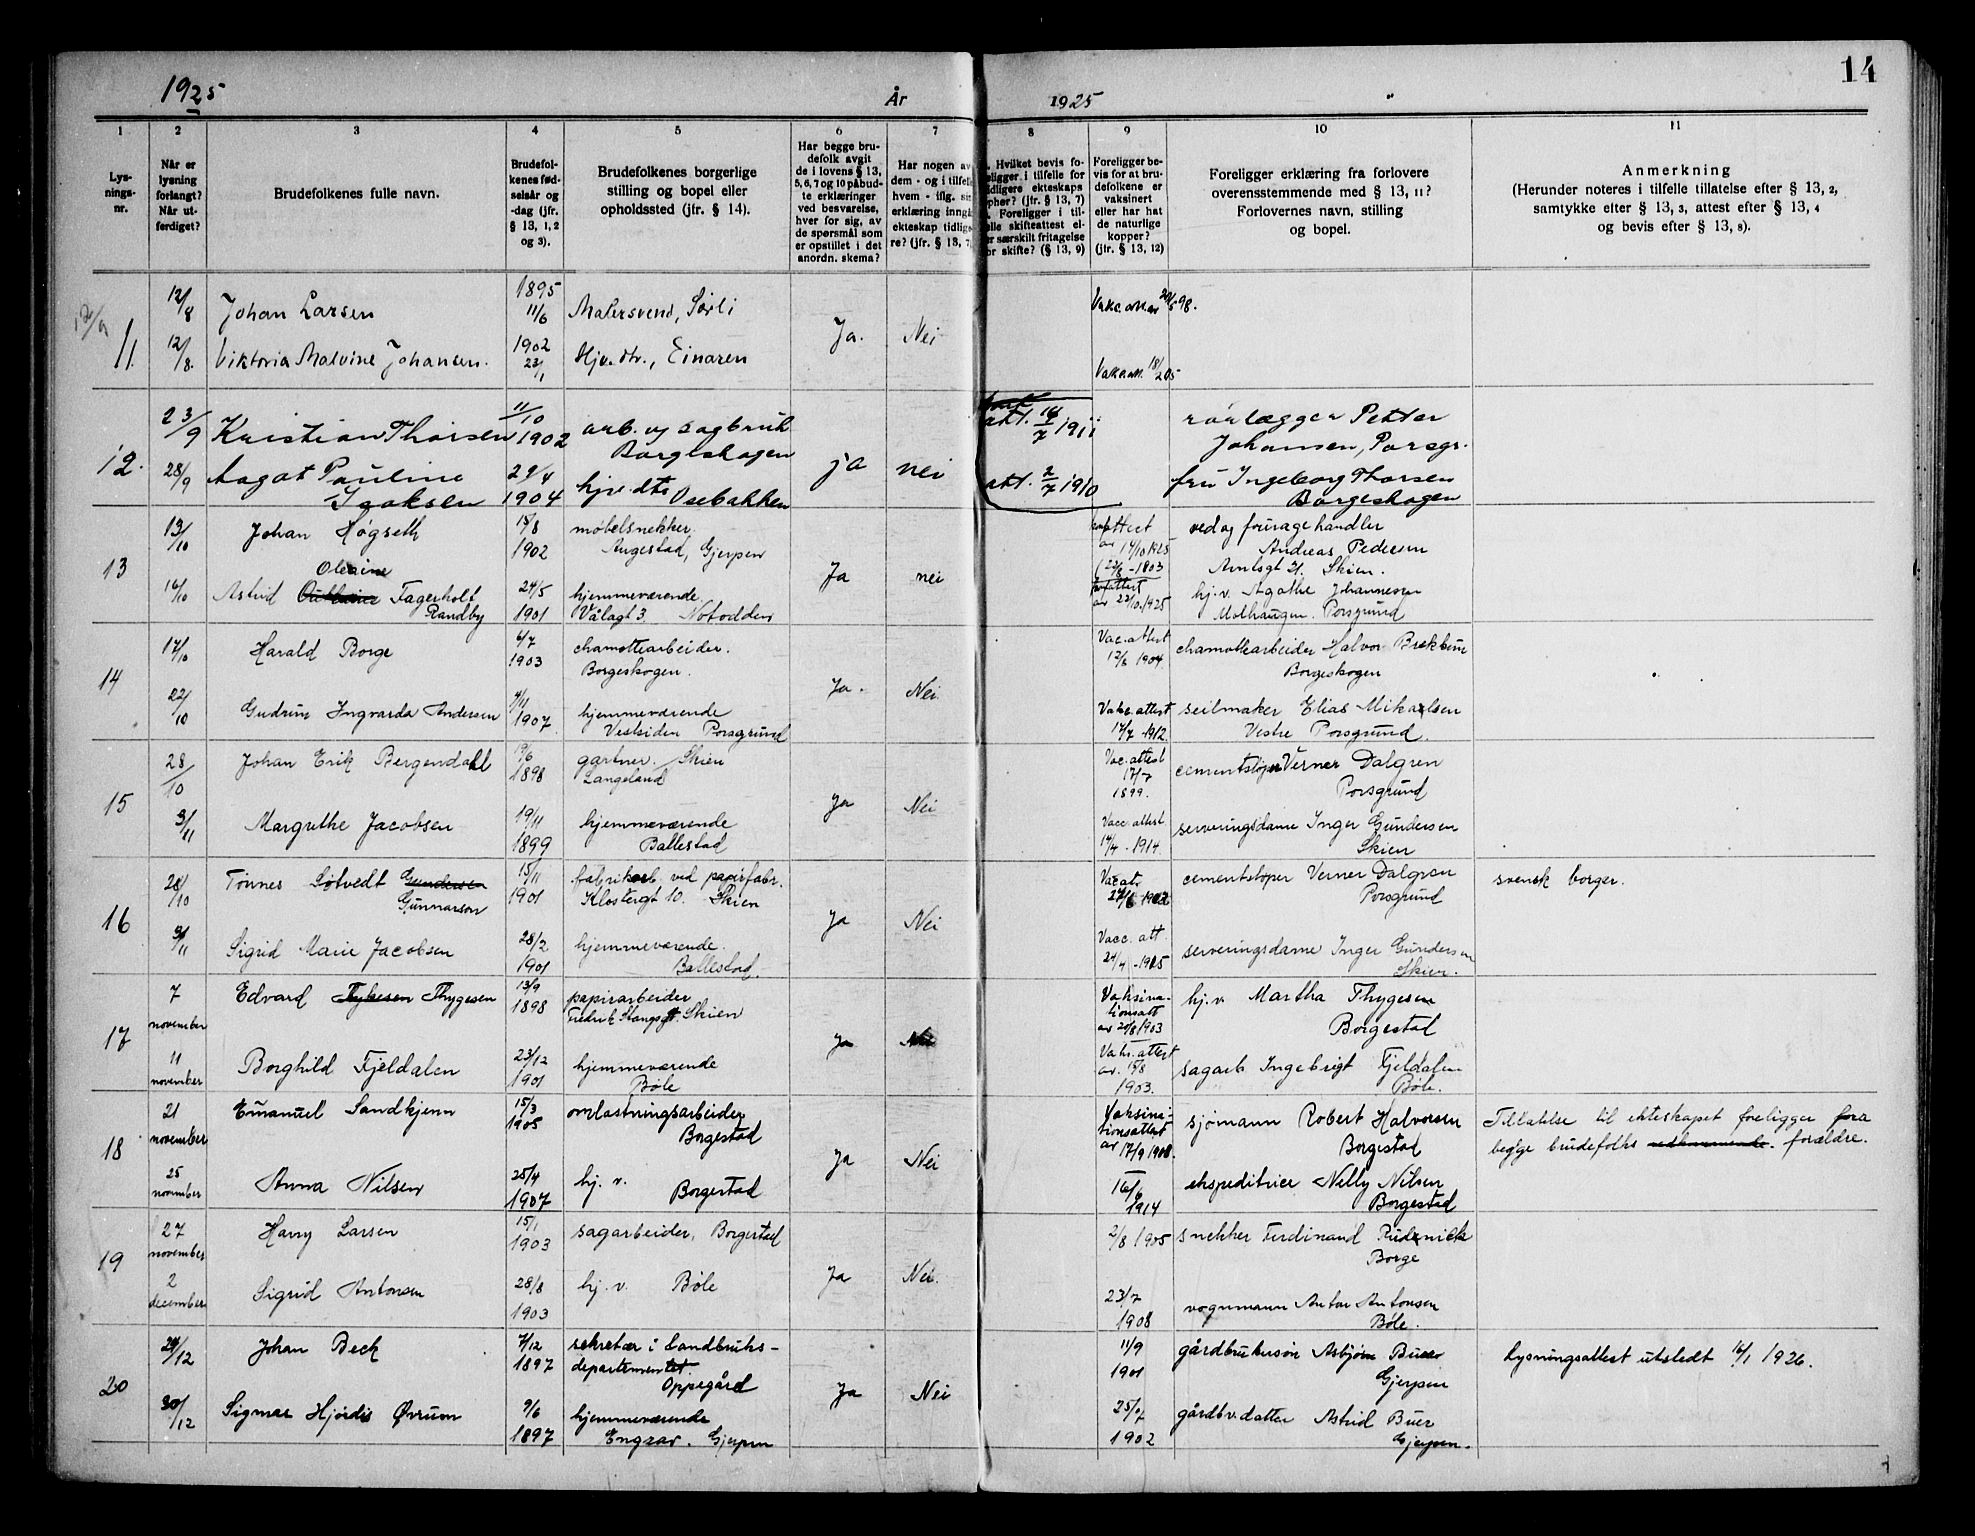 1925
År
1925
14
1
2
3
4
5
6
7
8
9
10
11
Lys-
nings-
nr.
Når er
lysning
forlangt?
Når ut-
ferdiget?
Brudefolkenes fulle navn.
Brudefol-
kenes fød-
selsår og
-dag (jfr.
§ 13, 1, 2
og 3).
Brudefolkenes borgerlige
stilling og bopel eller
opholdssted (jfr. § 14).
Har begge bru-
defolk avgit
de i lovens § 13,
5, 6, 7 og 10 påbud-
te erklæringer
ved besvarelse,
hver for sig, av
de spørsmål som
er opstillet i det
anordn. skema?
Har nogen av
dem - og i tilfelle
hvem - iflg. sin
erklæring inngåt
ekteskap tidlige-
re? (jfr. § 13, 7
Hvilket bevis fo-
religger i tilfelle for
tidligere ekteskaps
opher? (jfr. § 13, 7)
Foreligger i til-
felle skifteattest el-
er særskilt fritagelse
for skifte? (§ 13, 9)
Foreligger be-
vis for at bru-
defolkene er
vaksinert
eller har hat
de naturlige
kopper?
(jfr. § 13, 12)
Foreligger erklæring fra forlovere
overensstemmende med § 13, 11?
Forlovernes navn, stilling
og bopel.
Anmerkning
(Herunder noteres i tilfelle tillatelse efter § 13, 2,
samtykke efter § 13, 3, attest efter § 13, 4
og bevis efter § 13, 8).
11.
12/8
Johan Larsen
1895
11/6
Malersvend, Sørli
12/8.
Viktoria Malvine Johansen.
1902
23/1
Hjv. dtr., Einaren
Ja.
Nei
12.
23/9
Kristian Thorsen
11/10
1902
arb. og sagbruk
Borgeskogen
att. 14/7 1911
rørlægger Petter
Johansen, Porsgr.
28/9
Aagot Pauline
Isaksen
29/4
1904
hjv. dtr Osebakken
ja
nei
att. 2/7 1910
fru Ingeborg Thorsen
Borgeskogen
13
13/10
Johan Høgseth
15/8
1902
møbelsnekker
Augestad, Gjerpen
av 14/10 1925
ved og fouragehandler
Andreas Pedersen
Amtsgt 21. Skien.
16/10
Astrid Fagerholt
Randby
24/5
1901
hjemmeværende
Vålagt 3. Notodden
Ja
nei
av 22/10.1925
hj.v. Agathe Johannessen
Molhaugen. Porsgrund
14
17/10
Harald Borge
6/7
1903
chamottearbeider.
Borgeskogen.
Vac.attest
12/6 1904.
chamottearbeider Halvor
Borgeskogen
22/10
Gudrun Ingvarda Andersen
4/11
1907
hjemmeværende
Vestsiden Porsgrund
Ja.
Nei
Vaks.attest
17/7 1912.
seilmaker Elias Mikalsen
Vestre Porsgrund.
15
28/10
Johan Erik Bergendahl
19/6
1898
gartner. Skien
Langeland
Vac.attest
17/7
1899.
cementstøper Verner Dalgren
Porsgrund
3/11
Margrethe Jacobsen
19/11
1899
hjemmeværende
Ballestad
Ja
Nei
Vacc.attest
14/4 - 1914.
serveringsdame Inger Gundersen
Skien
16
28/10
Tønnes Søtvedt Gundersen
Gunnarson
15/11
1901
fabrikarb. ved papirfabr.
Klostergt 10. Skien
cementstøper Verner Dalgren
Porsgrund
svensk borger.
3/11
Sigrid Marie Jacobsen
28/2
1901
hjemmeværende.
Ballestad.
Ja
Nei
Vacc. att.
24/4 - 1915
serveringsdame Inger Gundersen
Skien.
17
7
november
Edvard Thygesen
13/9
1898
papirarbeider
Fredrik Stangsgt. Skien
Vaksina-
tionsatt
av 20/8 1903
hj.v. Martha Thygesen
Borgestad
11
november
Borghild Fjeldalen
23/12
1901
hjemmeværende
Bøle
Ja
Nei
Vaks.attest
1903.
sagarb Ingebrigt Fjeldalen
Bøle.
18
21
november
Emanuel Sandkjenn
15/3
1905
omlastningsarbeider
Borgestad
Vaksina-
tionsattest
av 17/9 1908.
sjømann Robert Halvorsen
Borgestad
Tillatelse til ekteskapet foreligger fra
begge brudefolks forældre.
25
november
Anna Nilsen
25/4
1907
hj. v.
Borgestad
Ja
Nei
16/6
1914
ekspeditrice Nelly Nilsen
Borgestad
19
27
november
Harry Larsen
15/1
1903
sagarbeider, Borgestad
2/8 1905
snekker Ferdinand Rudnick
Borge
2
december
Sigrid Antonsen
28/8
1903
hj. v. Bøle
Ja
Nei.
23/7
1908
vognmann Anton Antonsen
Bøle.
20
29/12
Johan Beck
4/12
1897
sekretær i Landbruks-
departementet.
Oppegård
11/9
1901
gårdbrukersøn Asbjørn Buer
Gjerpen
Lysningsattest utstedt 16/1 1926.
30/12
Sigmar Hjørdis Øvrum
9/6
1897
hjemmeværende
Gjerpen
Ja
Nei
25/7
1902
gårdbr.datter Astrid Buer
Gjerpen.